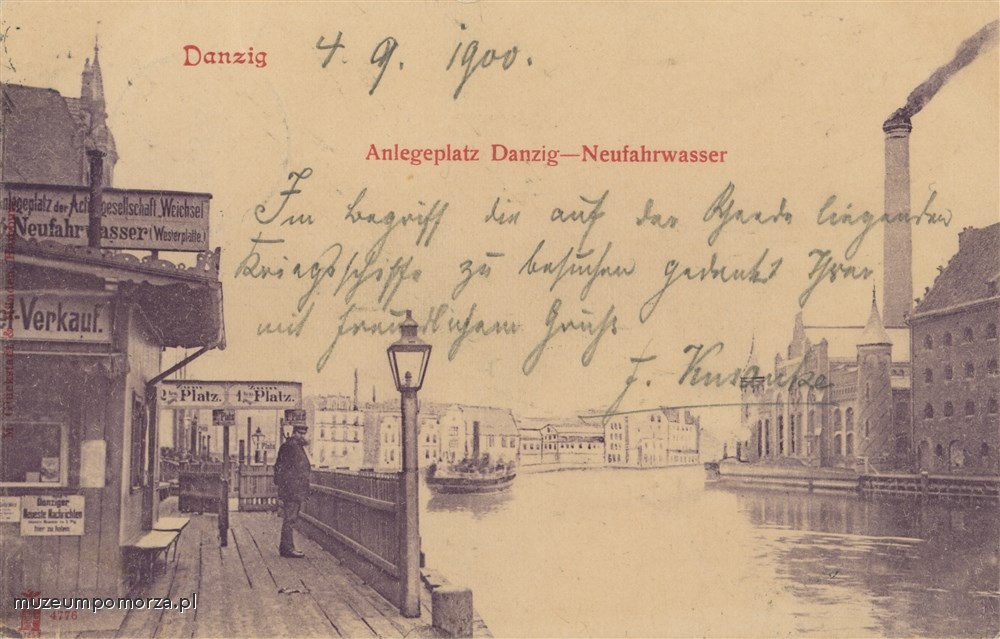 Danzig
4. 9. 1900.
Anlegeplatz Danzig—Neufahrwasser
Im Begriff die auf der Rheede liegenden
Kriegsschiffe zu besuchen gedenkt Ihrer
mit freundlichem Gruß
F.
Anlegeplatz der Actiengesellschaft „Weichsel"
Neufahrwasser (Westerplatte)
-Verkauf.
Zum
2ten Platz.
Zum
1ten Platz.
Danziger
Neueste Nachrichten
hier zu haben.
muzeumpomorza.pl
4776